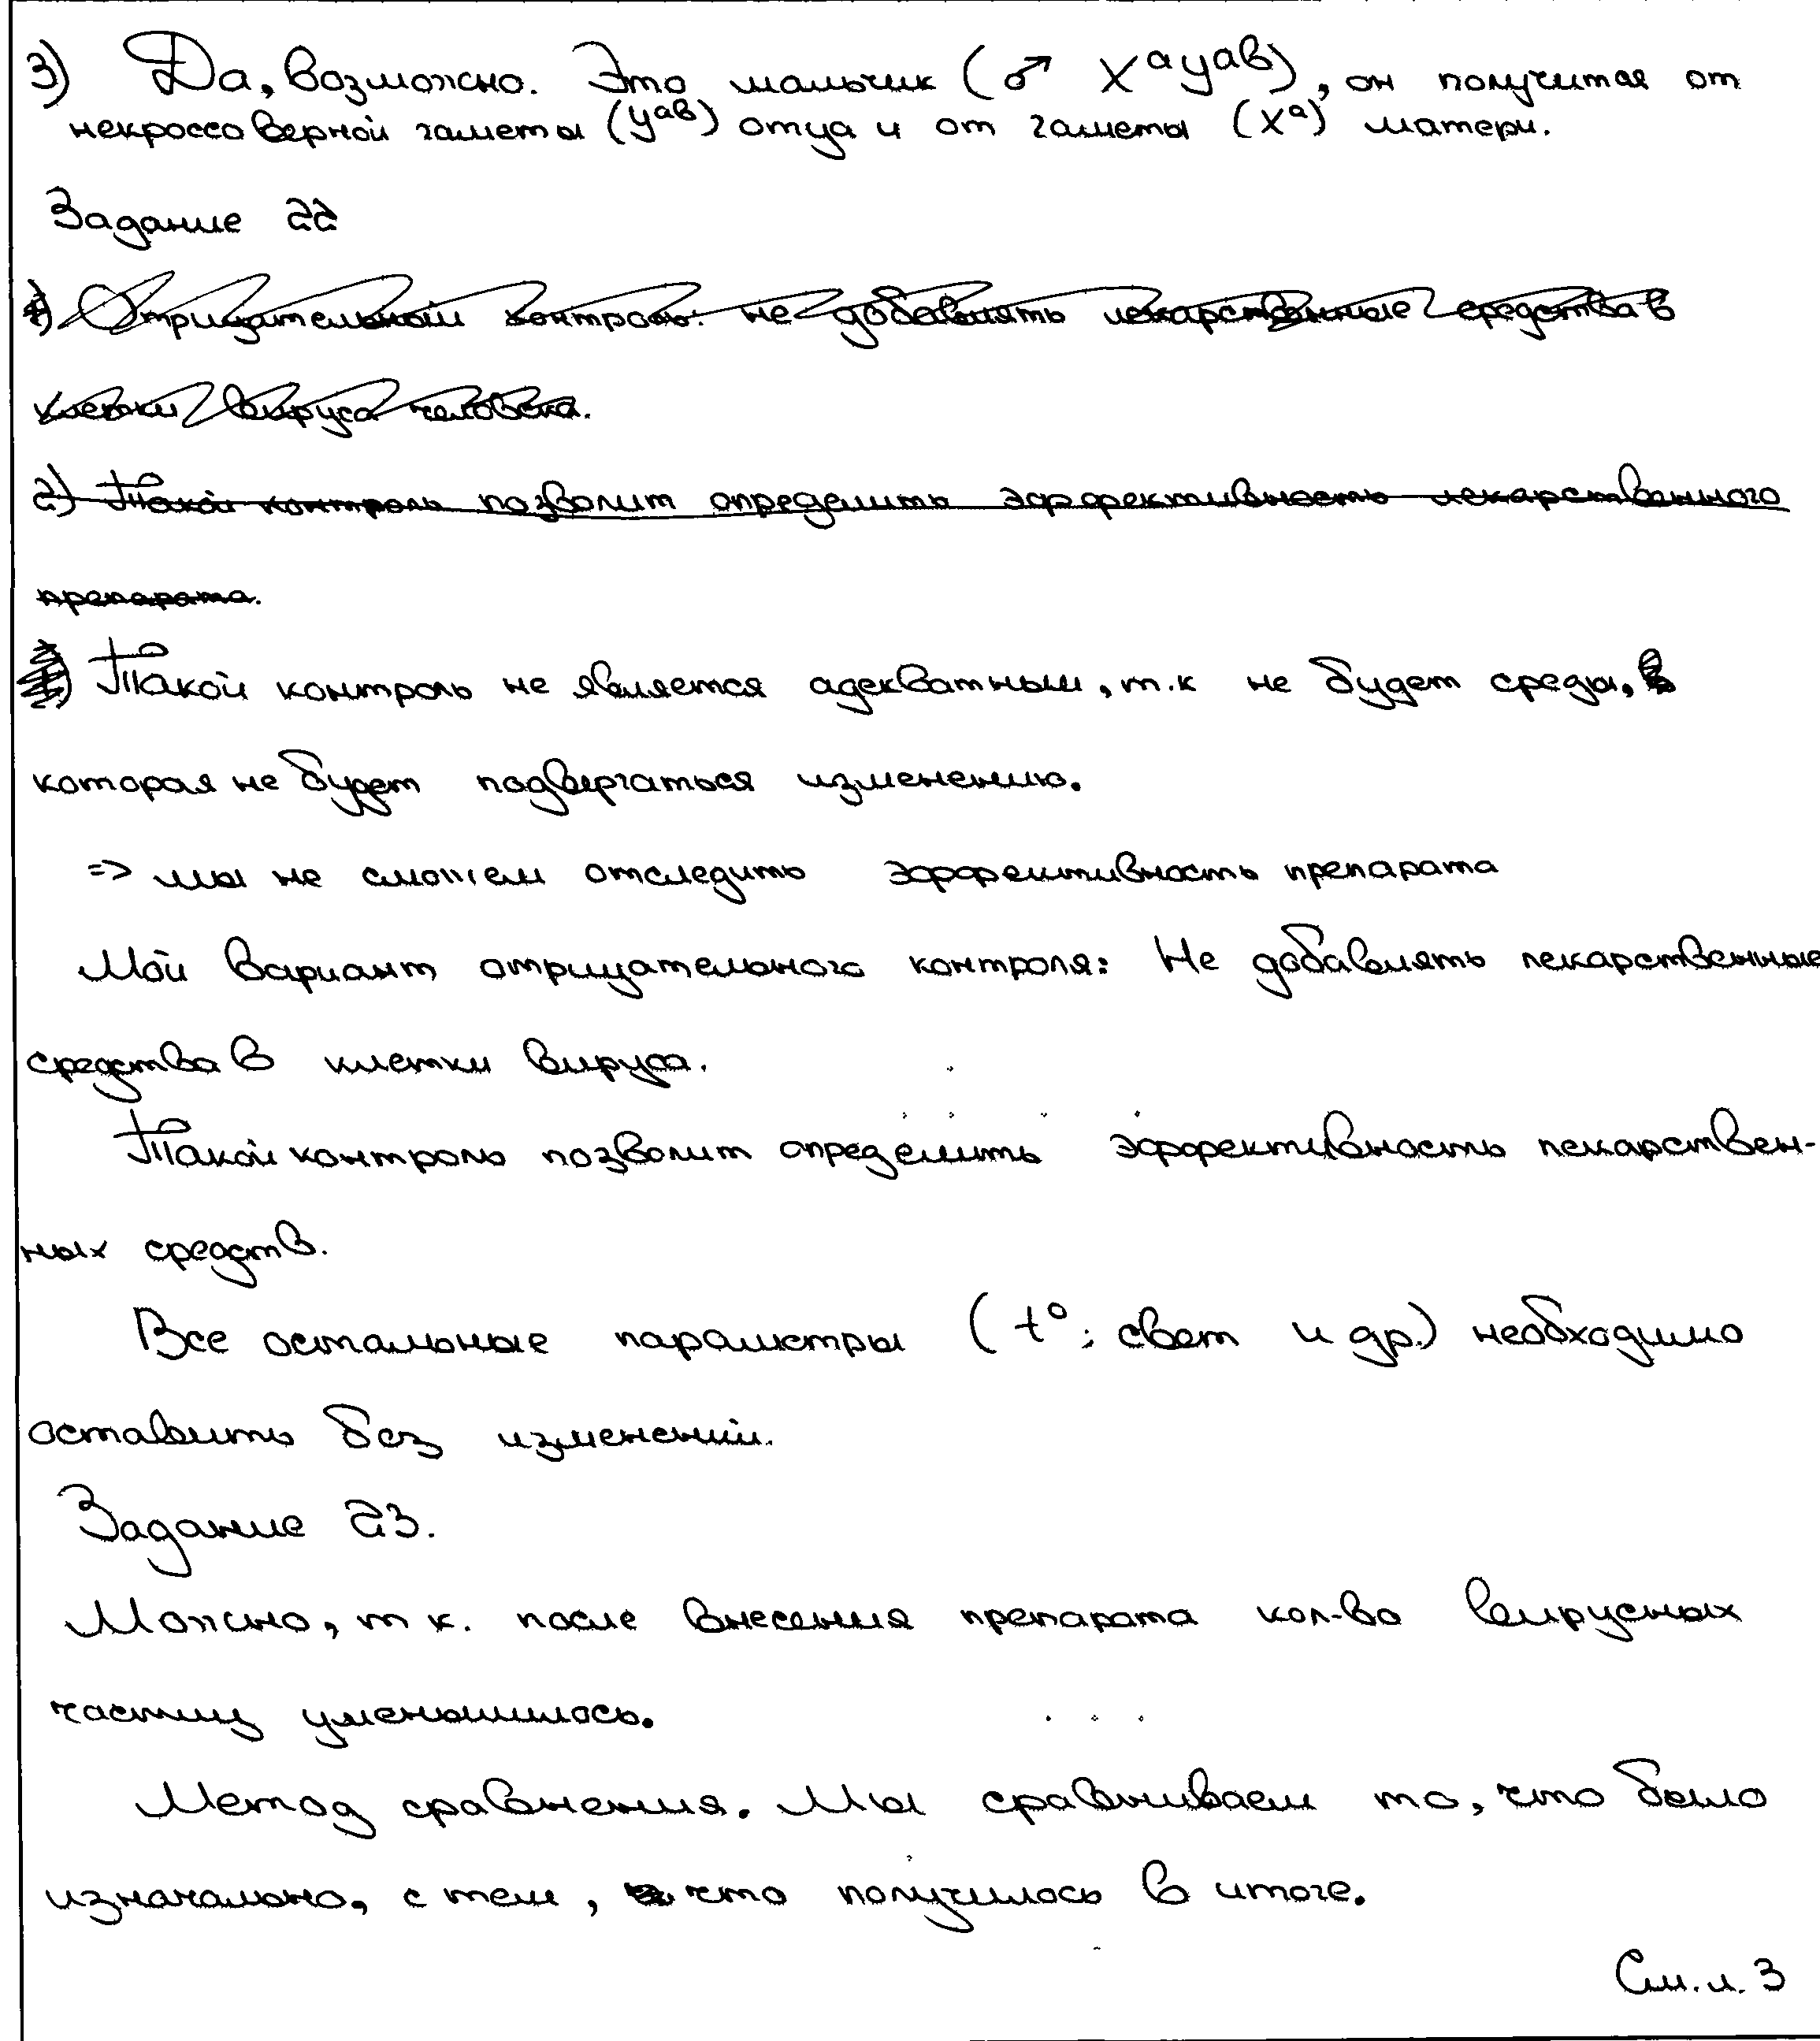 3) Да, возможно. Это мальчик (♂ XᵃYᵃᵇ), он получится от
некроссоверной гаметы (Yᵃᵇ) отца и от гаметы (Xᵃ) матери.
Задание 22
1) Отрицательный контроль: не добавлять лекарственные средства в
клетки вируса человека.
2) Такой контроль позволит определить эффективность лекарственного
препарата.
Такой контроль не является адекватным, т.к не будет среды,
которая не будет подвергаться изменению.
=> мы не сможем отследить эффективность препарата
Мой вариант отрицательного контроля: Не добавлять лекарственные
средства в клетки вируса.
Такой контроль позволит определить эффективность лекарствен-
ных средств.
Все остальные параметры (t°; свет и др.) необходимо
оставить без изменений.
Задание 23.
Можно, т к. после внесения препарата кол-во вирусных
частиц уменьшилось.
Метод сравнения. Мы сравниваем то, что было
изначально, с тем, что получилось в итоге.
См. л. 3